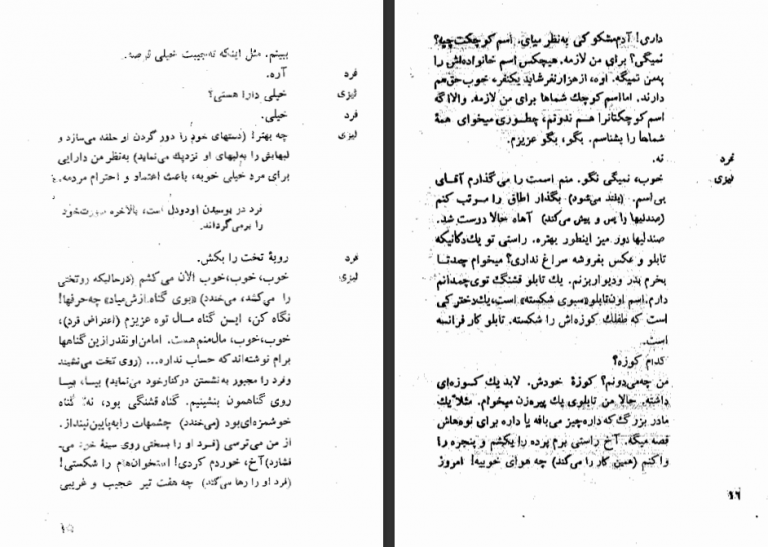 ببینم. مثل اینکه ته‌جیبت خیلی قرصه.
فرد آره.
لیزی خیلی دارا هستی؟
فرد خیلی.
لیزی چه بهتر! (دستهای خود را دور گردن او حلقه می‌سازد و
لبهایش را به‌لبهای او نزدیك می‌نماید) به‌نظر من دارایی
برای مرد خیلی خوبه، باعث اعتماد و احترام مردمه.
فرد در بوسیدن او دودل است، بالاخره صورت‌خود
را برمی‌گرداند.
فرد رویهٔ تخت را بکش.
لیزی خوب، خوب، خوب الآن می‌کشم (درحالیکه روتختی
را می‌کشد، می‌خندد) «بوی گناه ازش‌میاد» چه‌حرفها!
نگاه کن، ایـن گناه مـال توه عزیزم (اعتراض فرد)،
خوب، خوب، مال‌منم هست. امامن اونقدر ازین گناهها
برام نوشته‌اند که حساب نداره... (روی تخت می‌نشیند
وفرد را مجبور به‌نشستن درکنارخود می‌نماید) بیـا، بیـا
روی گناهمون بنشینیم. گناه قشنگی بود، نه؟ گناه
خوشمزه‌ای‌بود (می‌خندد) چشمهات رابه‌پایین‌نینداز.
از من می‌ترسی (فـرد او را بسختی روی سینهٔ خود می‌ـ
فشارد) آخ، خوردم کردی! استخوان‌هام را شکستی!
(فرد او را رها می‌کند) چه هفت تیر عجیب و غریبی
۱۵
داری! آدم مشکوکی به‌نظر میای. اسم کوچکت‌چیه؟
نمیگی؟ برای من لازمه. هیچکس اسم خانواده‌اش را
به‌من نمیگه. اوه، ازهزارنفر شاید یکنفر، خوب حق‌هم
دارند. امااسم کوچك شماها برای من لازمه. والااگه
اسم کوچکتانرا هـم ندونم، چطـوری میخوای همهٔ
شماها را بشناسم. بگو، بگو عزیزم.
فرد نه.
لیزی خوب، نمیگی نگو. منم اسمت را می‌گذارم آقـای
بی‌اسم. (بلند می‌شود) بگذار اطاق را مـرتب کنم
(صندلیها را پس و پیش می‌کند) آهاه حالا درست شد.
صندلیها دور میز اینطور بهتره. راستی تو یك‌دکانیکه
تابلو و عکس بفروشه سراغ نداری؟ میخوام چندتـا
بخرم بدر و دیواربزنم. یك تابلو قشنگ توی‌چمدانم
دارم. اسم اون‌تابلو «سبوی شکسته» است، یك‌دخترکی
است که طفلك کوزه‌اش را شکسته. تابلو کار فرانسه
است.
کدام کوزه؟
من چه‌می‌دونم؟ کوزهٔ خودش. لابد یك کـوزه‌ای
داشته. حالا من تابلوی یك پیره‌زن میخوام. مثلا یك
مادر بزرگ که داره‌چیز می‌بافه یا داره برای نوه‌هاش
قصه میگه. آخ راستی برم پرده را بکشم و پنجره را
واکنم (همین کار را می‌کند) چه هوای خوبیه! امروز
۱۶